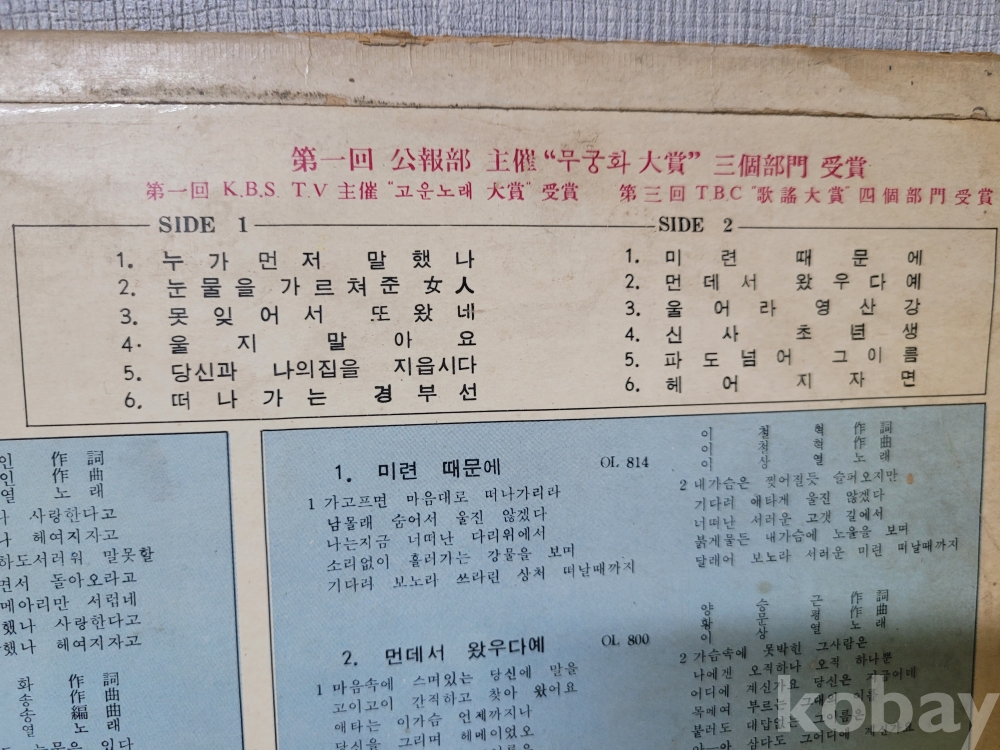 第一回 公報部 主催 “무궁화 大賞” 三個部門 受賞
第一回 K.B.S T.V 主催 “고운노래 大賞” 受賞 第三回 TBC “歌謠大賞” 四個部門受賞
SIDE 1
1. 누가먼저 말했나
2. 눈물을 가르쳐준 女人
3. 못잊어서 또왔네
4. 울지 말아요
5. 당신과 나의집을 지읍시다
6. 떠나가는 경부선
SIDE 2
1. 미련 때문에
2. 먼데서 왔우다예
3. 울어라 영산강
4. 신사초년생
5. 파도넘어 그이름
6. 헤어지자면
인 作詞
인 作曲
열 노래
나 사랑한다고
나 헤여지자고
하도서러워 말못할
면서 돌아오라고
메아리만 서럽네
했나 사랑한다고
했나 헤여지자고
화 作詞
송 作曲
송 編曲
열 노래
눈물은 있다
1. 미련 때문에 OL 814
이철혁 作詞
이철혁 作曲
이상열 노래
1 가고프면 마음대로 떠나가리라
남몰래 숨어서 울진 않겠다
나는지금 너떠난 다리위에서
소리없이 흘러가는 강물을 보며
기다려 보노라 쓰라린 상처 떠날때까지
2 내가슴은 찢어질듯 슬퍼오지만
기다려 애타게 울진 않겠다
너떠난 서러운 고갯 길에서
붉게물든 내가슴에 노을을 보며
달래어 보노라 서러운 미련 떠날때까지
2. 먼데서 왔우다예 OL 800
양승근 作詞
황문평 作曲
이상열 노래
1 마음속에 스며있는 당신에 말을
고이고이 간직하고 찾아 왔어요
애타는 이가슴 언제까지나
당신을 그리며 헤메이었오
2 가슴속에 못박힌 그사람은
나에겐 오직하나 오직 하나뿐
어디에 계신가요 당신은
목메여 부르는 그대의 이름
불러도 대답없는 그이름은
kobay